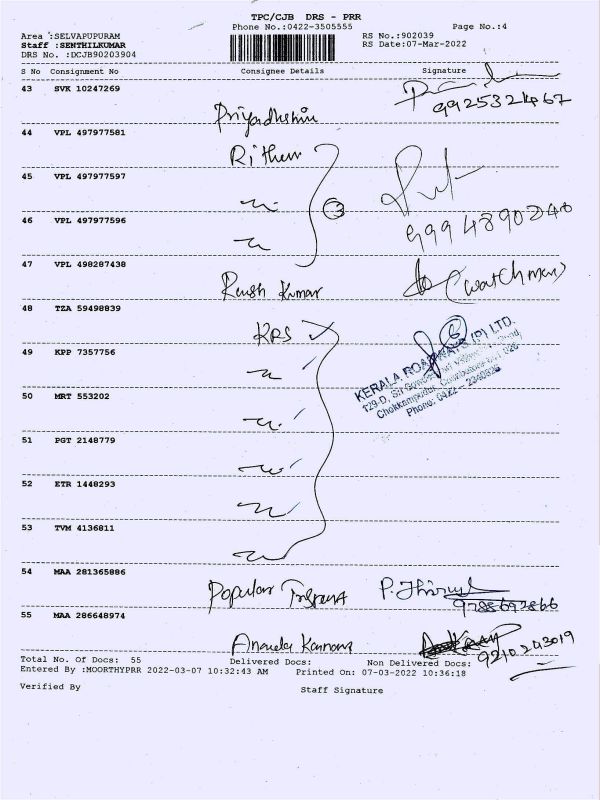 TPC/CJB DRS - PRR
Phone No.:0422-3505555 Page No.:4
Area :SELVAPUPURAM RS No.:902039
Staff :SENTHILKUMAR RS Date:07-Mar-2022
DRS No. :DCJB90203904
S No Consignment No Consignee Details Signature
43 SVK 10247269
Priyadhshini
44 VPL 497977581
Rithew
45 VPL 497977597
3
46 VPL 497977596
9994890240
47 VPL 498287438
Kumar (watchman)
48 TZA 59498839
KRS
6
49 KPP 7357756
KERALA ROADWAYS (P) LTD.
50 MRT 553202
Phone: 0422 -
51 PGT 2148779
52 ETR 1448293
53 TVM 4136811
54 MAA 281365886
Popular
55 MAA 286648974
Total No. Of Docs: 55 Delivered Docs: Non Delivered Docs:
Entered By :MOORTHYPRR 2022-03-07 10:32:43 AM Printed On: 07-03-2022 10:36:18
Verified By Staff Signature